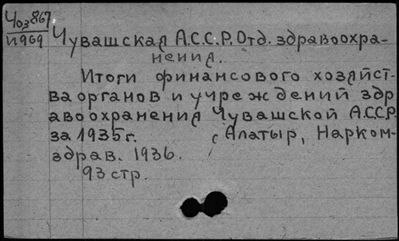 Ч03867
И969
Чувашская А.С.С.Р. Отд. здравоохра-
нения.
Итоги финансового хозяйст-
ва органов и учреждений здр
авоохранения Чувашской А.С.С.Р.
за 1935 г. Алатыр, Нарком-
здрав. 1936.
93 стр.